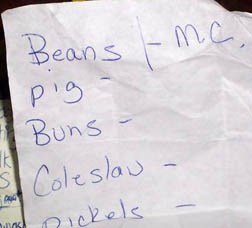 Beans - M.C.
pig -
Buns -
Coleslaw -
Pickels -